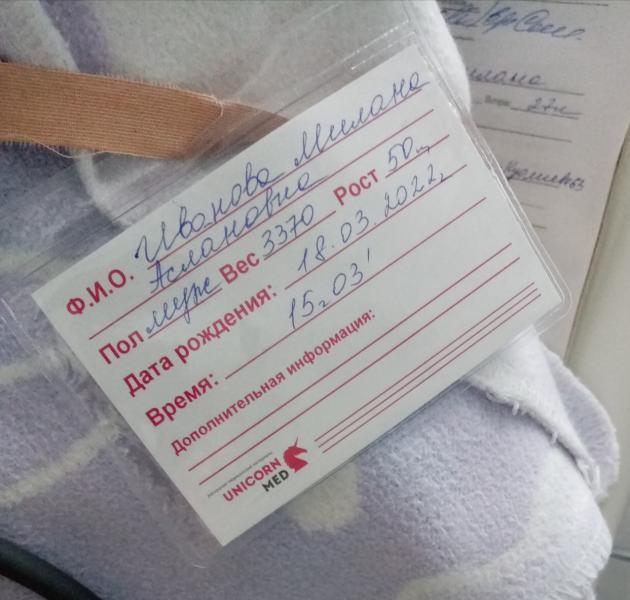 Ф.И.О. Иванова Милана
Аслановна
Пол муж Вес 3370 Рост 50ц
Дата рождения: 18.03.2022г
Время: 15ч03'
Дополнительная информация:
UNICORN
MED
27л